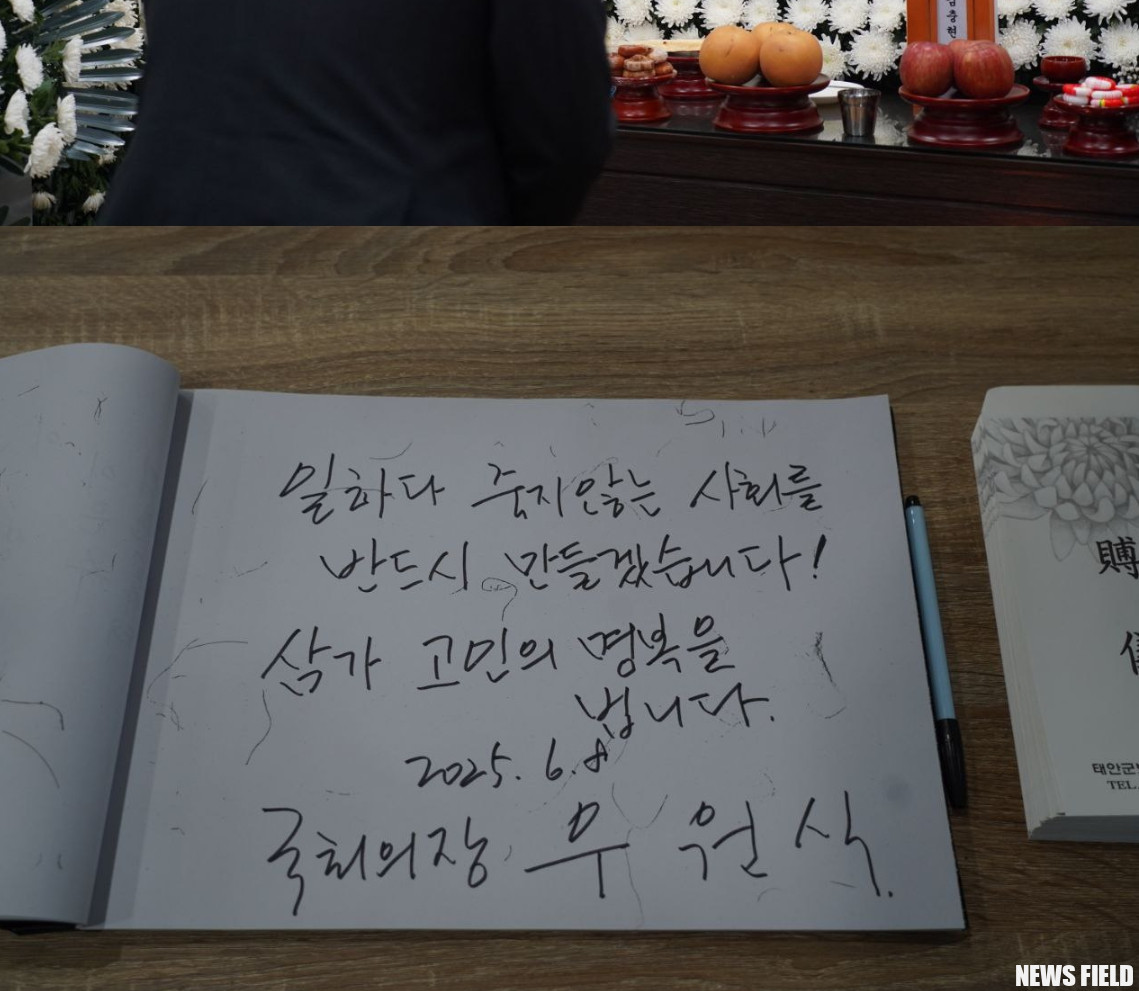 충
현
일하다 죽지않는 사회를
반드시 만들겠습니다!
삼가 고인의 명복을
빕니다.
2025. 6. 8
국회의장 우 원 식.
賻
태안군
TEL.
NEWS FIELD